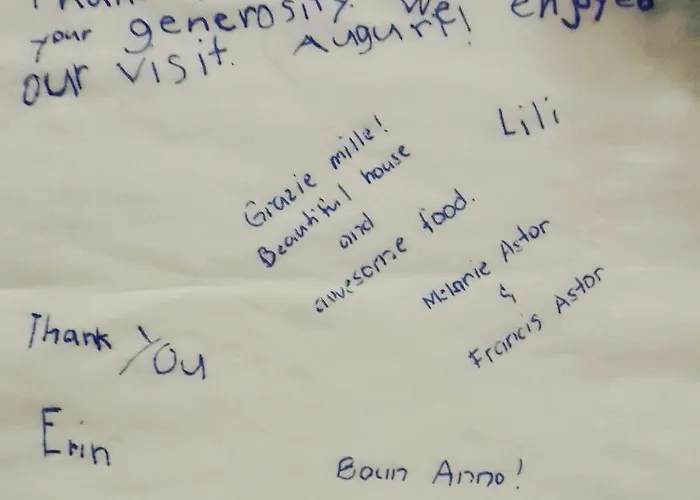 your generosity. We enjoyed
our visit. Auguri!
Lili
Grazie mille!
Beautiful house
and
awesome food.
Melanie Astor
&
Francis Astor
Thank You
Erin
Boun Anno!